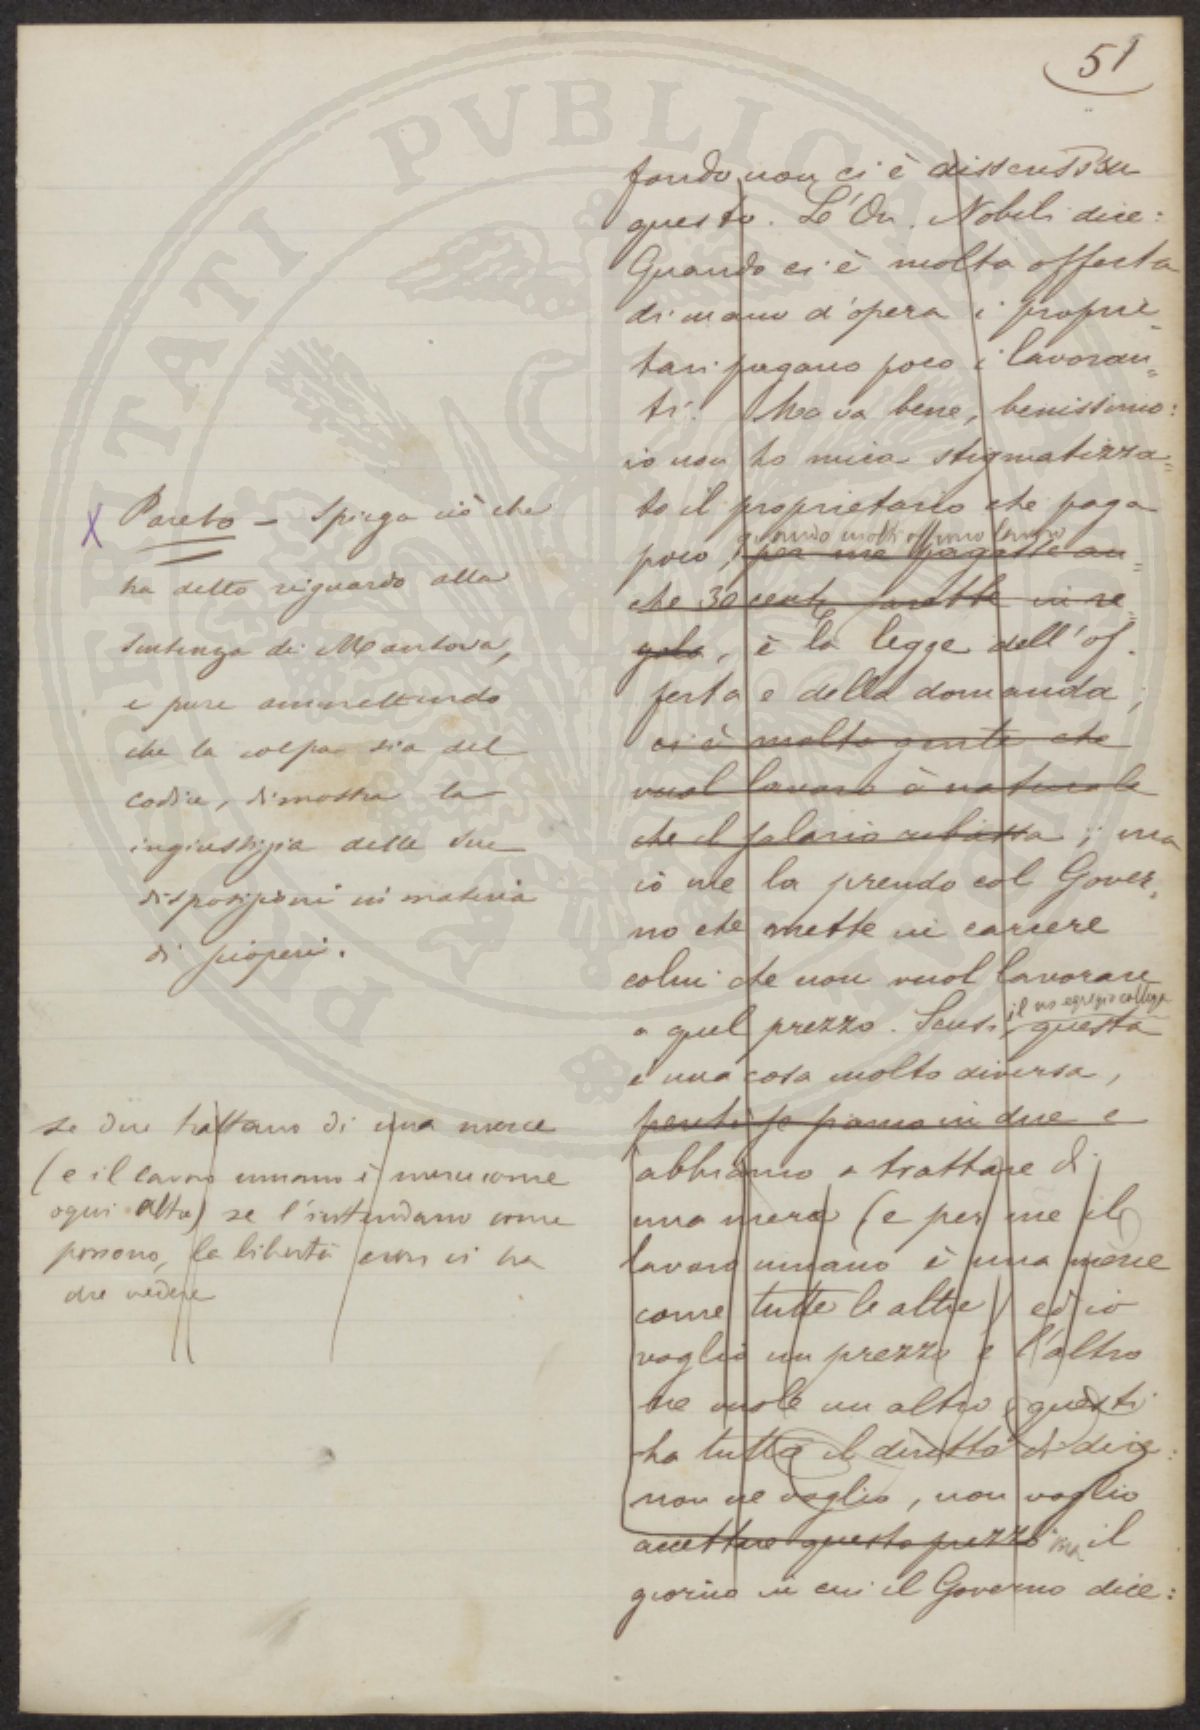 51
fondo non ci è dissenso su
questo. L'On. Nobili dice:
Quando ci è molta offerta
di mano d'opera i proprie=
tari pagano poco i lavoran=
ti. Ma va bene, benissimo:
io non ho mica stigmatizza=
to il proprietario che paga
quando molti offrono lavoro
poco, per me pagasse an=
che 30 cent. sarebbe in re=
gola, è la legge dell'of=
ferta e della domanda;
ci è molta gente che
vuol lavoro è naturale
che il salario ribassa; ma
io me la prendo col Gover=
no che mette in carcere
colui che non vuol lavorare
il mio egregio collega
a quel prezzo. Scusi, questa
è una cosa molto diversa,
siamo in due e
abbiamo a trattare di
una merce (e per me il
lavoro umano è una merce
come tutte le altre) ed io
voglio un prezzo e l'altro
ne vuole un altro, questi
ha tutto il diritto di dire:
non ne voglio, non voglio
accettare questo prezzo; ma il
giorno in cui il Governo dice:
X Pareto - Spiega ciò che
ha detto riguardo alla
sentenza di Mantova,
e pure ammettendo
che la colpa sia del
codice, dimostra la
ingiustizia delle sue
disposizioni in materia
di scioperi.
se due trattano di una merce
(e il lavoro umano è merce come
ogni altra) se l'intendano come
possono, la libertà non ci ha
che vedere
PVBLICAE